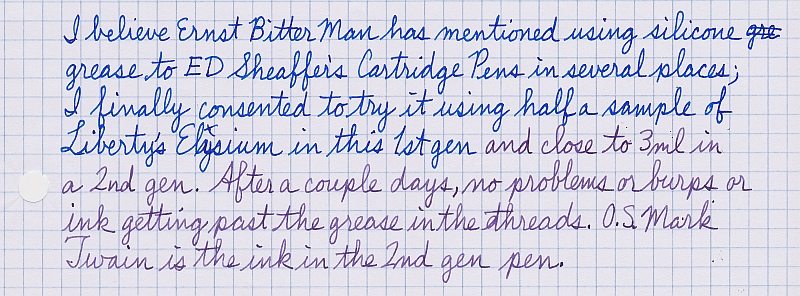 I believe Ernst Bitter Man has mentioned using silicone gre
grease to ED Sheaffer's Cartridge Pens in several places;
I finally consented to try it using half a sample of
Liberty's Elysium in this 1st gen and close to 3ml in
a 2nd gen. After a couple days, no problems or burps or
ink getting past the grease in the threads. O.S. Mark
Twain is the ink in the 2nd gen pen.